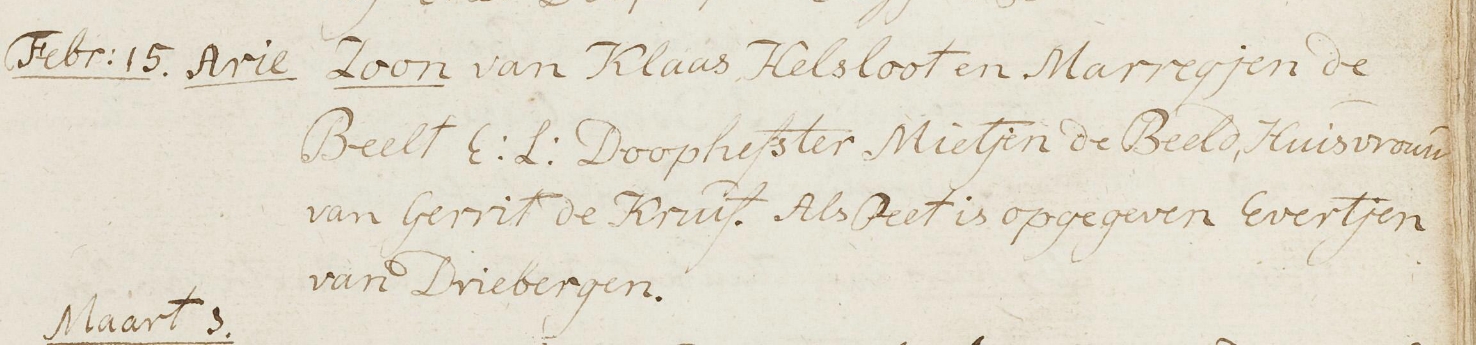 Febr: 15. Arie Zoon van Klaas Helsloot en Marregjen de
Beelt E: L: Doophefster Mietjen de Beeld, Huisvrouw
van Gerrit de Kruif. Als Peet is opgegeven Evertjen
van Driebergen.
Maart 3.